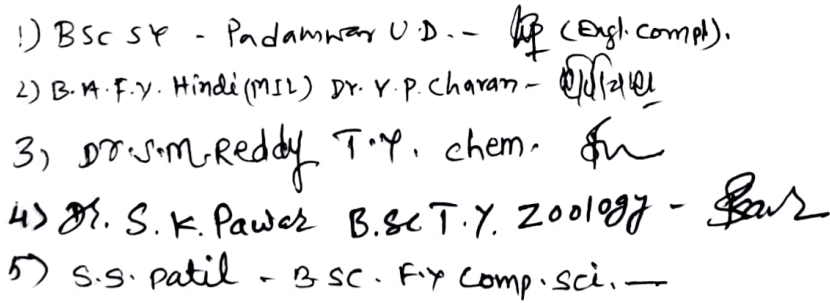 1) BSc SY - Padamwar U.D. - (Engl. Compl).
2) B.A.F.Y. Hindi (MIL) Dr. V.P. Chavan -
3) Dr. S.M. Reddy T.Y. chem.
4) Dr. S.K. Pawar B.Sc T.Y. Zoology -
5) S.S. Patil - BSC. F.Y Comp. Sci. —